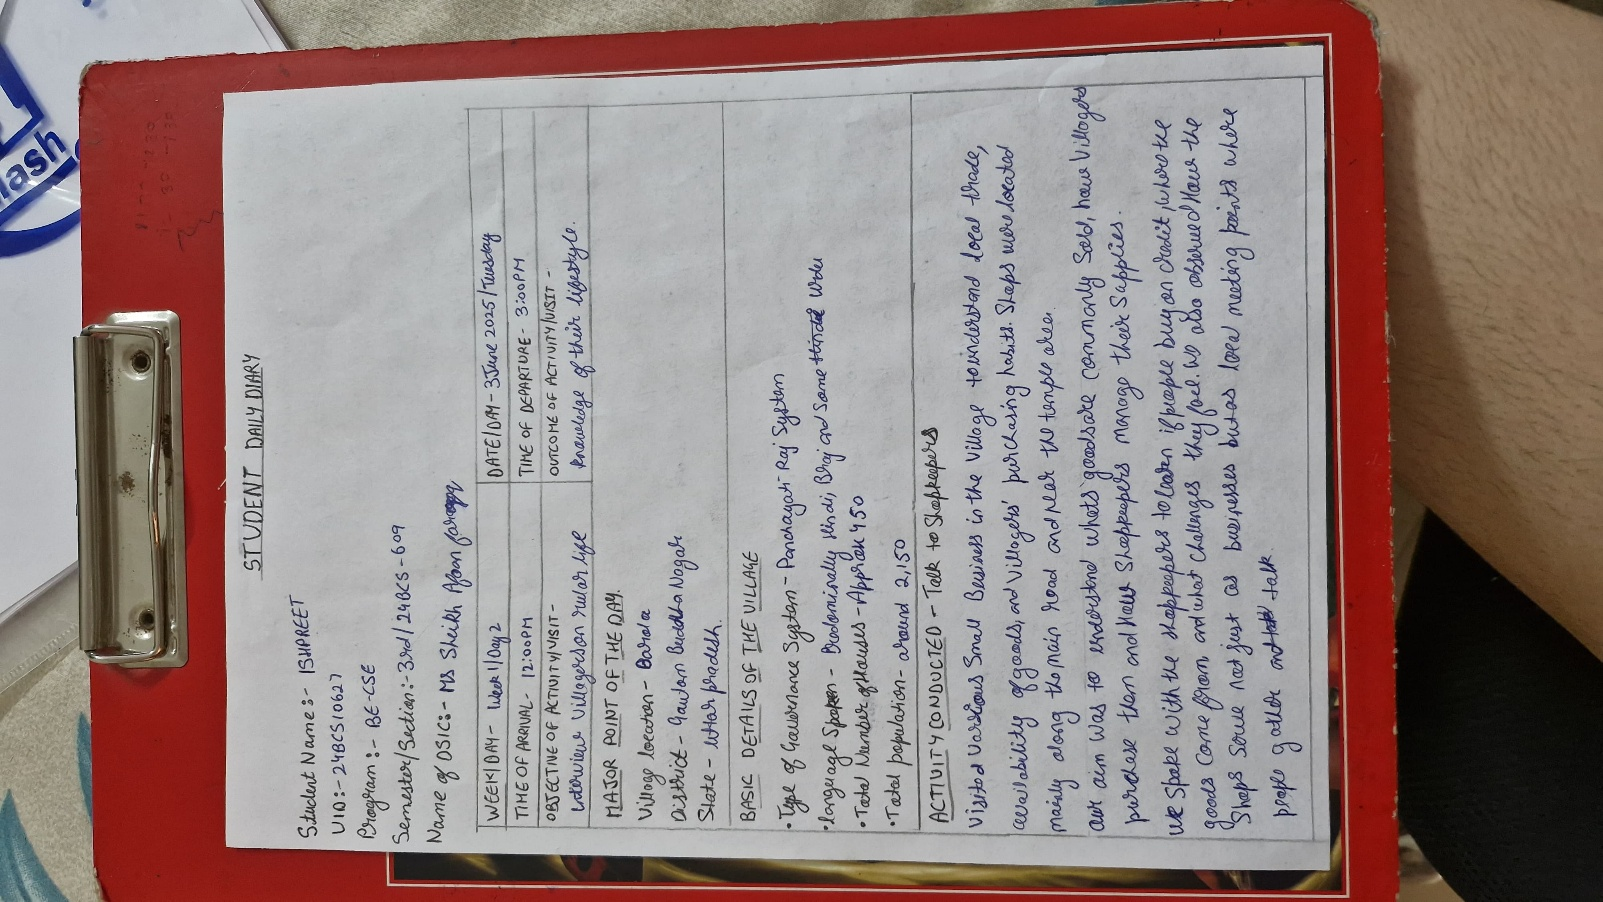 STUDENT DAILY DIARY
Student Name:- ISHPREET
UID:- 24BCS10627
Program:- BE-CSE
Semester/Section:- 3rd/24BCS-609
Name of DSIC:- MS Sheikh Afoon
WEEK/DAY- Week 1/Day 2
DATE/DAY- 3 June 2025/Tuesday
TIME OF ARRIVAL- 12:00PM
TIME OF DEPARTURE- 3:00PM
OBJECTIVE OF ACTIVITY/VISIT-
interview Villagers on rular life
OUTCOME OF ACTIVITY/VISIT-
knowledge of their lifestyle.
MAJOR POINT OF THE DAY.
Village location-
District- Gautam Buddha Nagar
State- Uttar pradesh.
BASIC DETAILS OF THE VILLAGE
• Type of Governance System- Panchayati Raj System
• language Spoken- Predominally Hindi, Braj and Some Hindi Urdu
• Total Number of Houses- Approx 450
• Total population- around 2,150
ACTIVITY CONDUCTED- Talk to Shopkeepers
Visited Various Small Business in the village to understand local trade,
availability of goods, and Villagers' purchasing habits. Shops were located
mainly along the main road and near the temple area.
our aim was to understand whats goods are commonly Sold, how Villagers
purchase them and how Shopkeepers manage their Supplies.
we Spoke with the shopkeepers to learn if people buy on credit, where the
goods come from, and what challenges they face. We also observed How the
Shops Serve not just as businesses but as local meeting points where
people gather and talk